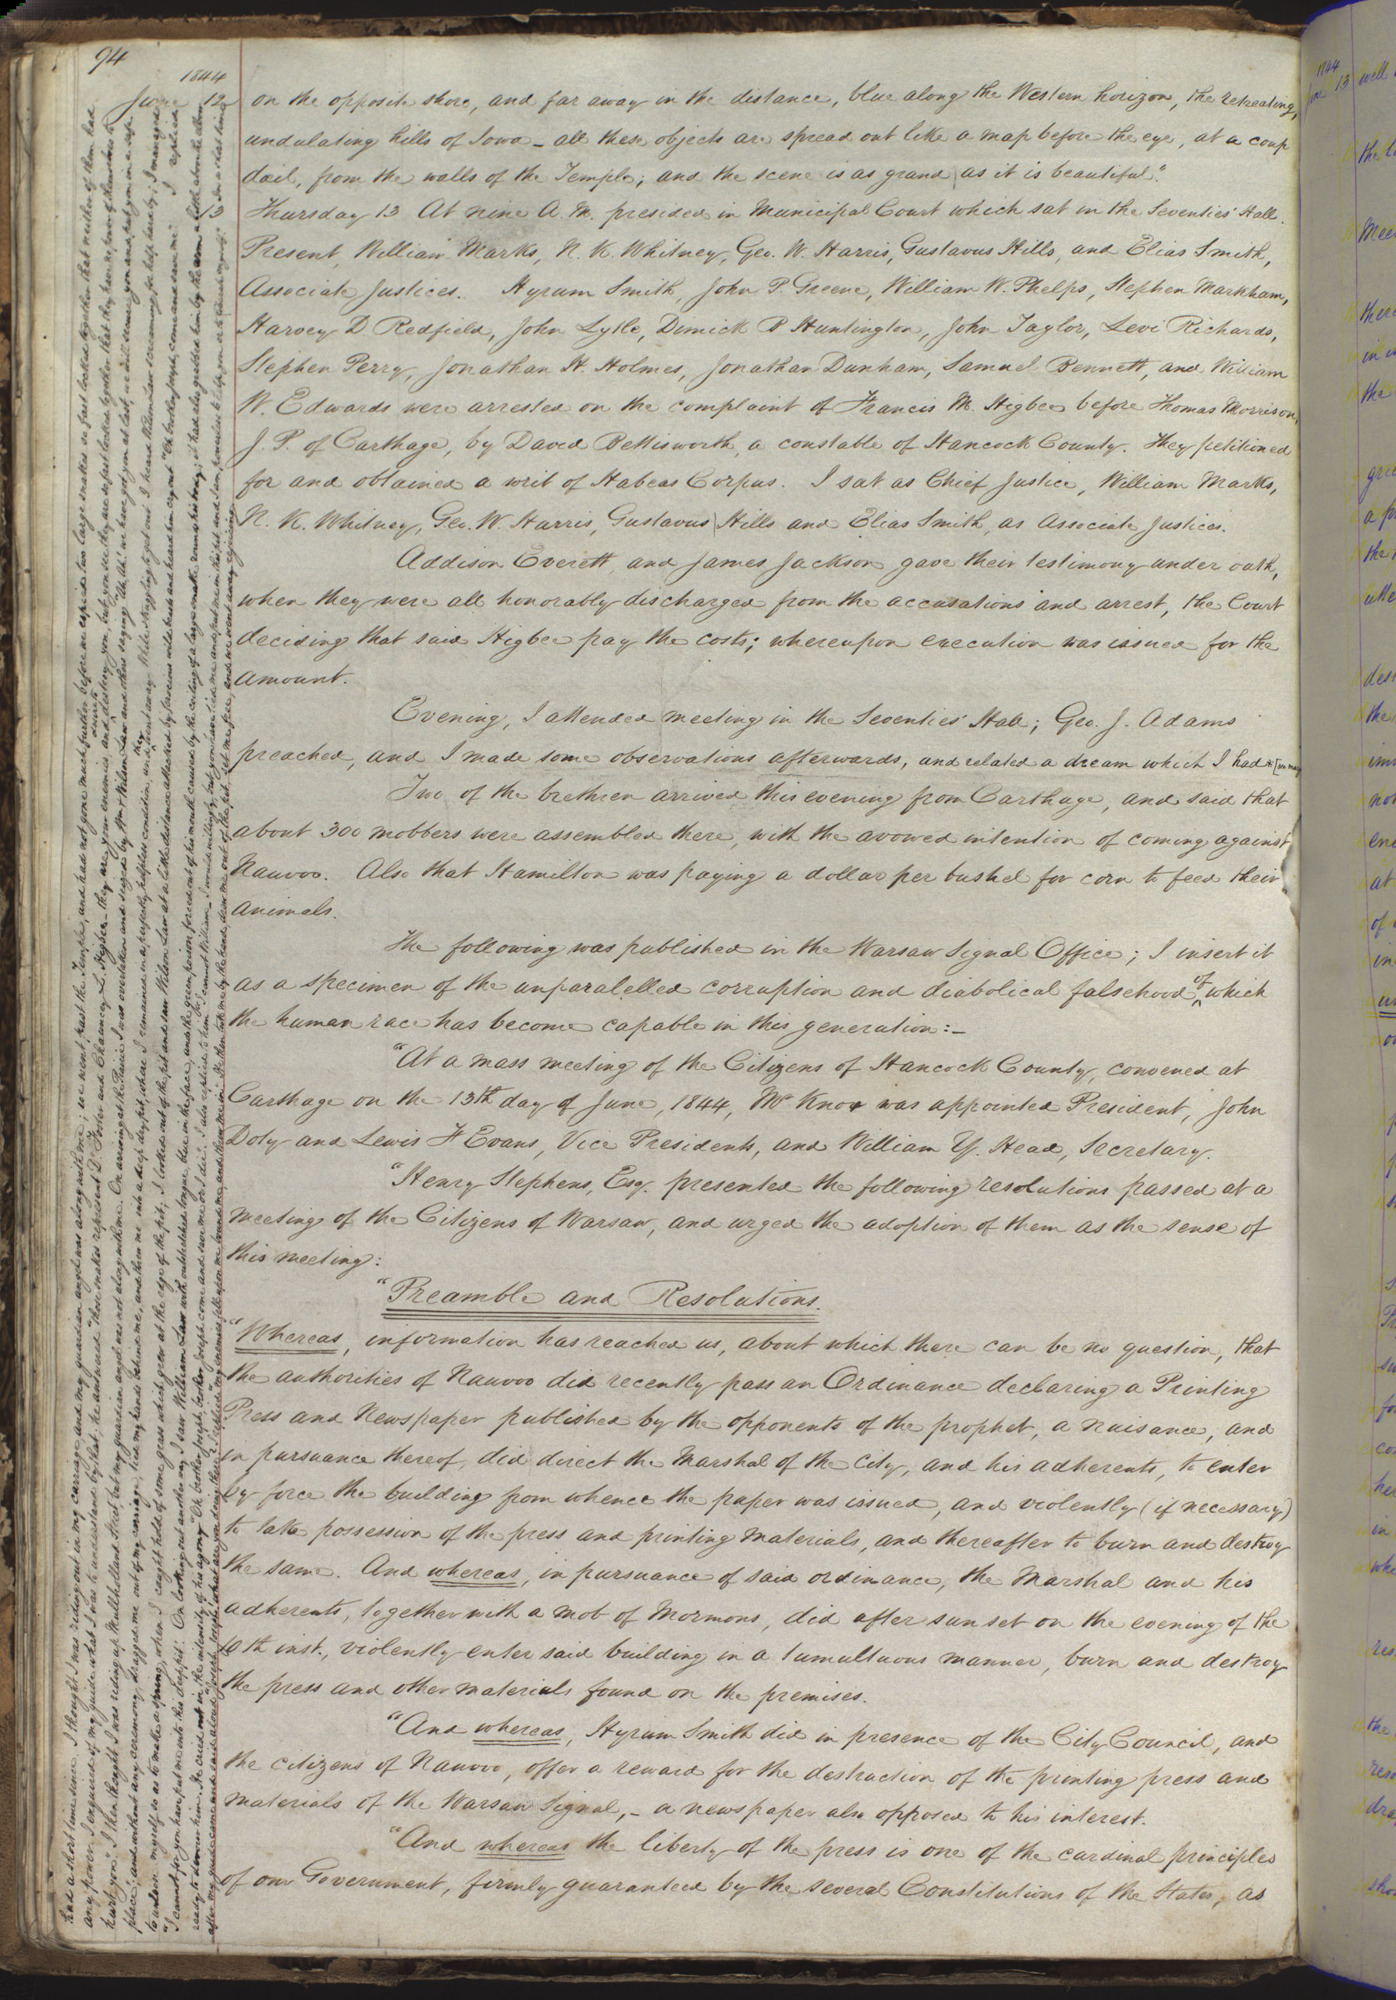 94
1844
June 12 on the opposite shore, and far away in the distance, blue along the Western horizon, the retreating,
undulating hills of Iowa – all these objects are spread out like a map before the eye, at a coup
dœil, from the walls of the Temple; and the scene is as grand as it is beautiful".
13 Thursday 13 At nine A. M. presided in Municipal Court which sat in the Seventies' Hall.
Present, William Marks, N. K. Whitney, Geo. W. Harris, Gustavus Hills, and Elias Smith,
Associate Justices. Hyrum Smith, John P. Greene, William W. Phelps, Stephen Markham,
Harvey D Redfield, John Lytle, Dimick B Huntington, John Taylor, Levi Richards,
Stephen Perry, Jonathan H. Holmes, Jonathan Dunham, Samuel Bennett, and William
W. Edwards were arrested on the complaint of Francis M. Higbee before Thomas Morrison,
J. P. of Carthage, by David Bettisworth, a constable of Hancock County. They petitioned
for and obtained a writ of Habeas Corpus. I sat as Chief Justice, William Marks,
N. K. Whitney, Geo. W. Harris, Gustavus Hills and Elias Smith, as Associate Justices.
Addison Everett, and James Jackson gave their testimony under oath,
when they were all honorably discharged from the accusations and arrest, the Court
deciding that said Higbee pay the costs; whereupon execution was issued for the
amount.
Evening, I attended meeting in the Seventies' Hall; Geo. J. Adams
preached, and I made some observations afterwards, and related a dream which I had *[in mar
Two of the brethren arrived this evening from Carthage, and said that
about 300 mobbers were assembled there, with the avowed intention of coming against
Nauvoo. Also that Hamilton was paying a dollar per bushel for corn to feed their
animals.
The following was published in the Warsaw Signal Office; I insert it
as a specimen of the unparalelled corruption and diabolical falsehood of which
the human race has become capable in this generation:–
"At a mass meeting of the Citizens of Hancock County, convened at
Carthage on the 13th day of June, 1844, Mr Knox was appointed President, John
Doty and Lewis F Evans, Vice Presidents, and William Y. Head, Secretary.
"Henry Stephens, Esq. presented the following resolutions passed at a
meeting of the Citizens of Warsaw, and urged the adoption of them as the sense of
this meeting:
"Preamble and Resolutions.
"Whereas, information has reached us, about which there can be no question, that
the authorities of Nauvoo did recently pass an Ordinance declaring a Printing
Press and Newspaper published by the opponents of the prophet, a nuisance, and
in pursuance thereof, did direct the Marshal of the City, and his adherents, to enter
by force the building from whence the paper was issued, and violently (if necessary)
to take possession of the press and printing materials, and thereafter to burn and destroy
the same. And whereas, in pursuance of said ordinance, the Marshal and his
adherents, together with a mob of Mormons, did after sunset on the evening of the
10th inst., violently enter said building in a tumultuous manner, burn and destroy
the press and other materials found on the premises.
"And whereas, Hyrum Smith did in presence of the City Council, and
the citizens of Nauvoo, offer a reward for the destruction of the printing press and
materials of the Warsaw Signal, – a newspaper also opposed to his interest.
"And whereas the liberty of the press is one of the cardinal principles
of our Government, firmly guaranteed by the several Constitutions of the States, as
had a short time since. I thought I was riding out in my carriage, and my guardian angel was along with me; we went past the Temple, and had not gone much further before we espied two large snakes so fast locked together that neither of them had
any power. I enquired of my guide what I was to understand by that; he answered "those snakes represent Dr. Foster and Chauncey L. Higbee – they are your enemies and desire to destroy you, but you see they are so fast locked together that they have no power of themselves to
hurt you." I then thought I was riding up Mulholland Street, but my guardian angel was not along with me. On arriving at the Prairie I was overtaken and seized by Wm & Wilson Law and others saying "Ah, Ah! we have got you at last, we will secure you and put you in a safe
place"; and without any ceremony dragged me out of my carriage, tied my hands behind me, and threw me into a deep dry pit, where I remained in a perfectly helpless condition, and they went away. While struggling to get out I heard Wilson Law screaming for help hard by; I managed
to unloose myself so as to make a spring, when I caught hold of some grass which grew at the edge of the pit; I looked out of the pit and saw Wilson Law at a little distance attacked by ferocious wild beasts and heard him cry out "Oh brother Joseph, come and save me". I replied
"I cannot, for you have put me into this deep pit". On looking out another way I saw William Law with outstretched tongue, blue in the face, and the green poison forced out of his mouth caused by the coiling of a large snake round his body; it had also grabbed him by the arm a little above the elbow
ready to devour him. He cried out in the intensity of his agony "Oh, brother Joseph, brother Joseph come and save me or I die." I also replied to him "I cannot William, I would willingly, but you have tied me and put me in this pit and I am powerless to help you or to liberate myself." In a short time
after my guide came and said aloud "Joseph, Joseph, what are you doing there?" I replied "my enemies fell upon me bound me, and threw me in". He then took me by the hand, drew me out of the pit, set me free, and we went away rejoicing.
1844
13